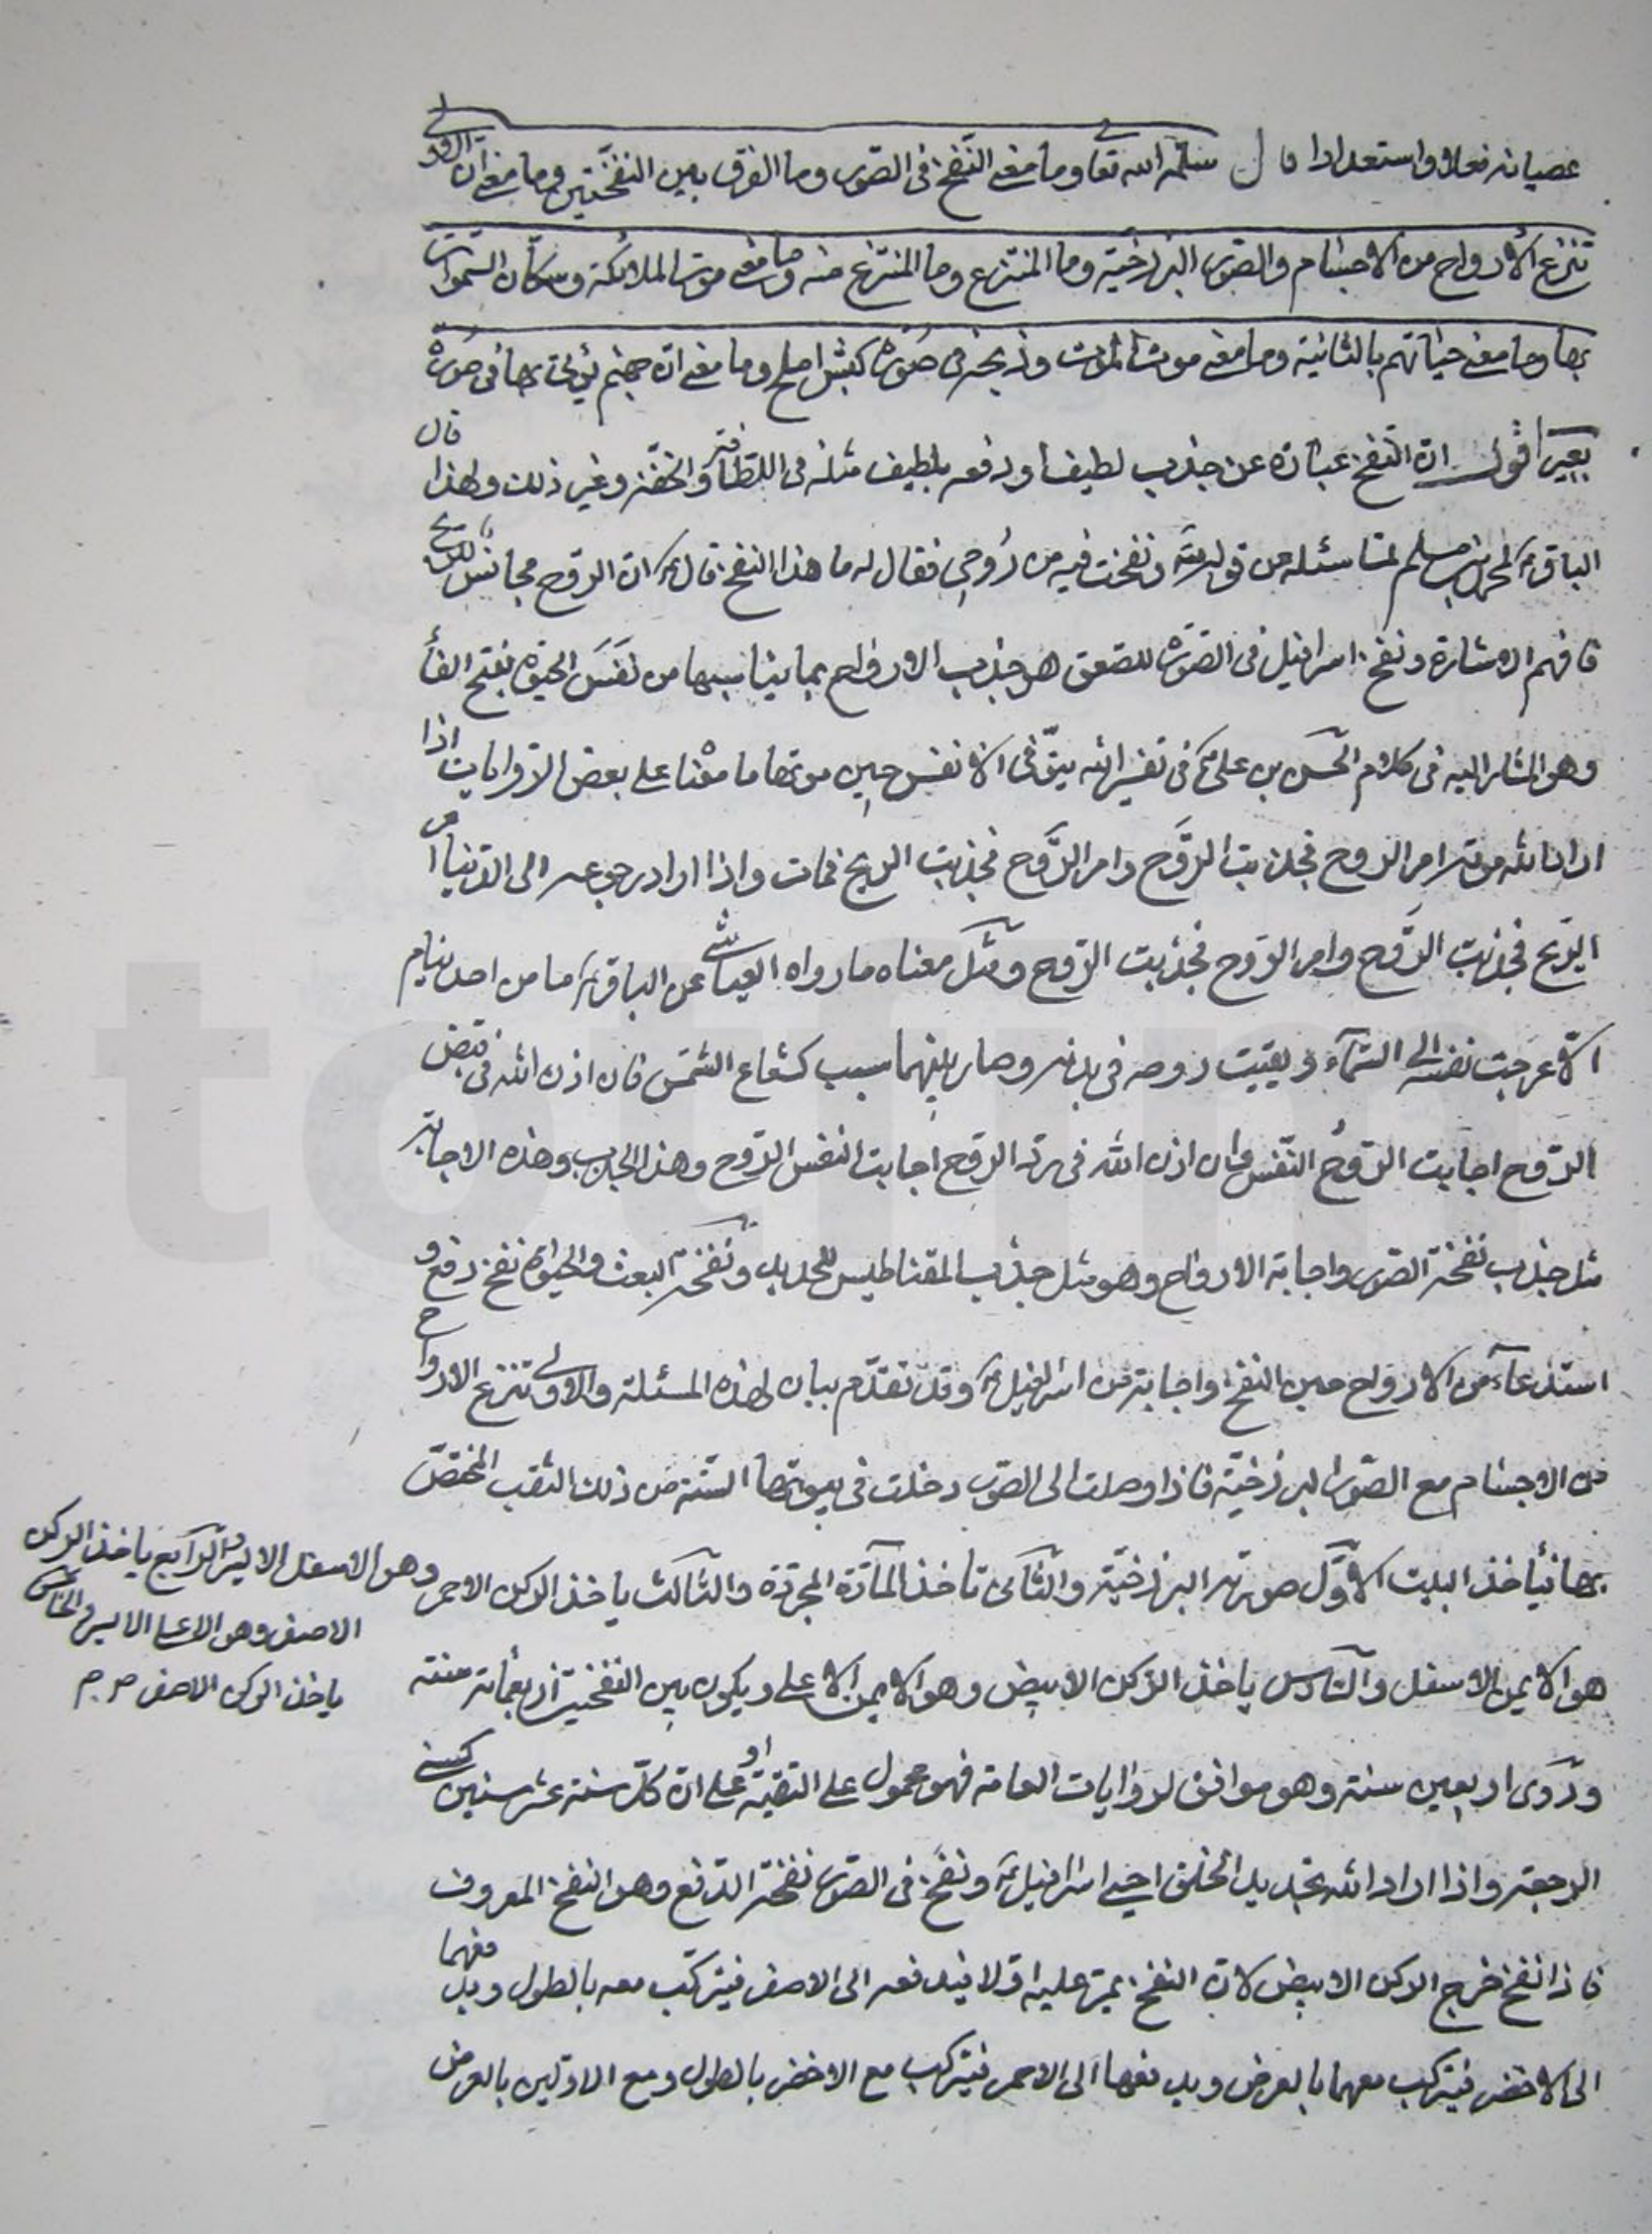 عصيانه فعلا واستعدادا قال سلمه الله تعا وما معنى النفخ فى الصور وما الفرق بين النفختين وما معنى ان الاولى
تنزع الارواح من الاجسام والصور البرزخية وما المنتزع وما المنتزع منه وما معنى موت الملائكة وسكان السموات
بها وما معنى حياتهم بالثانية وما معنى موت الموت وذبحه فى صورة كبش املح وما معنى ان جهنم يؤتى بها فى صورة
بعير اقول ان النفخ عبارة عن جذب لطيف او دفعه بلطيف مثله فى اللطافة والخفة وغير ذلك ولهذا قال
الباقر ع لمحمد بن مسلم لما سئله عن قوله تع ونفخت فيه من روحى فقال له ما هذا النفخ قال ع ان الروح مجانس للريح
فافهم الاشارة ونفخ اسرافيل فى الصور للصعق هو جذب الارواح بما يناسبها من نفس الحيوة بفتح الفاء
وهو المشار اليه فى كلام الحسن بن على ع فى تفسير الله يتوفى الانفس حين موتها ما معنا على بعض الروايات اذا
اراد الله موته امر الروح فجذبت الروح وامر الروح فجذبت الريح فمات واذا اراد رجوعه الى الدنيا امر
الريح فجذبت الروح وامر الروح فجذبت الروح ومثل معناه ما رواه العياشى عن الباقر ع ما من احد ينام
الا عرجت نفسه الى السماء وبقيت روحه فى بدنه وصار بينهما سبب كشعاع الشمس فان اذن الله فى قبض
الروح اجابت الروح النفس وان اذن الله فى رد الروح اجابت النفس الروح وهذا الجذب وهذه الاجابة
مثل جذب نفخة الصور واجابة الارواح وهو مثل جذب المقناطيس للحديد ونفخة البعث والحيوة نفخ دفع و
استدعاء من الارواح حين النفخ واجابة من اسرافيل ع وقد تقدم بيان لهذه المسئلة والاولى تنزع الارواح
من الاجسام مع الصور البرزخية فاذا وصلت الى الصور دخلت فى بيوتها الستة من ذلك الثقب المختص
بها فيأخذ البيت الاول صورته البرزخية والثانى تاخذ المادة المجردة والثالث ياخذ الركن الاحمر وهو الاسفل الايسر والرابع ياخذ الركن
الاصفر وهو الاعلى الايسر والخامس
ياخذ الركن الاصفر
هو الايمن الاسفل والسادس ياخذ الركن الابيض وهو الايمن الاعلى ويكون بين النفختين اربعمائة سنة
وروى اربعين سنة وهو موافق لروايات العامة فهو محمول على التقية او على ان كل سنة عشر سنين كسنى
الرجعة واذا اراد الله تجديد الخلق احيى اسرافيل ع ونفخ فى الصور نفخة الدفع وهو النفخ المعروف
فاذا نفخ خرج الركن الابيض لان النفخ يمر عليه اولا فيدفعه الى الاصفر فيتركب معه بالطول ويدفعهما
الى الاخضر فيتركب معهما بالعرض ويدفعها الى الاحمر فيتركب مع الاخضر بالطول ومع الاولين بالعرض